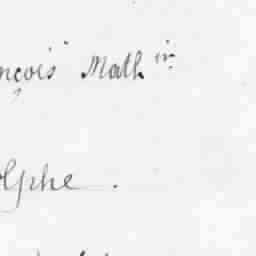 nçois Math in.
olphe .